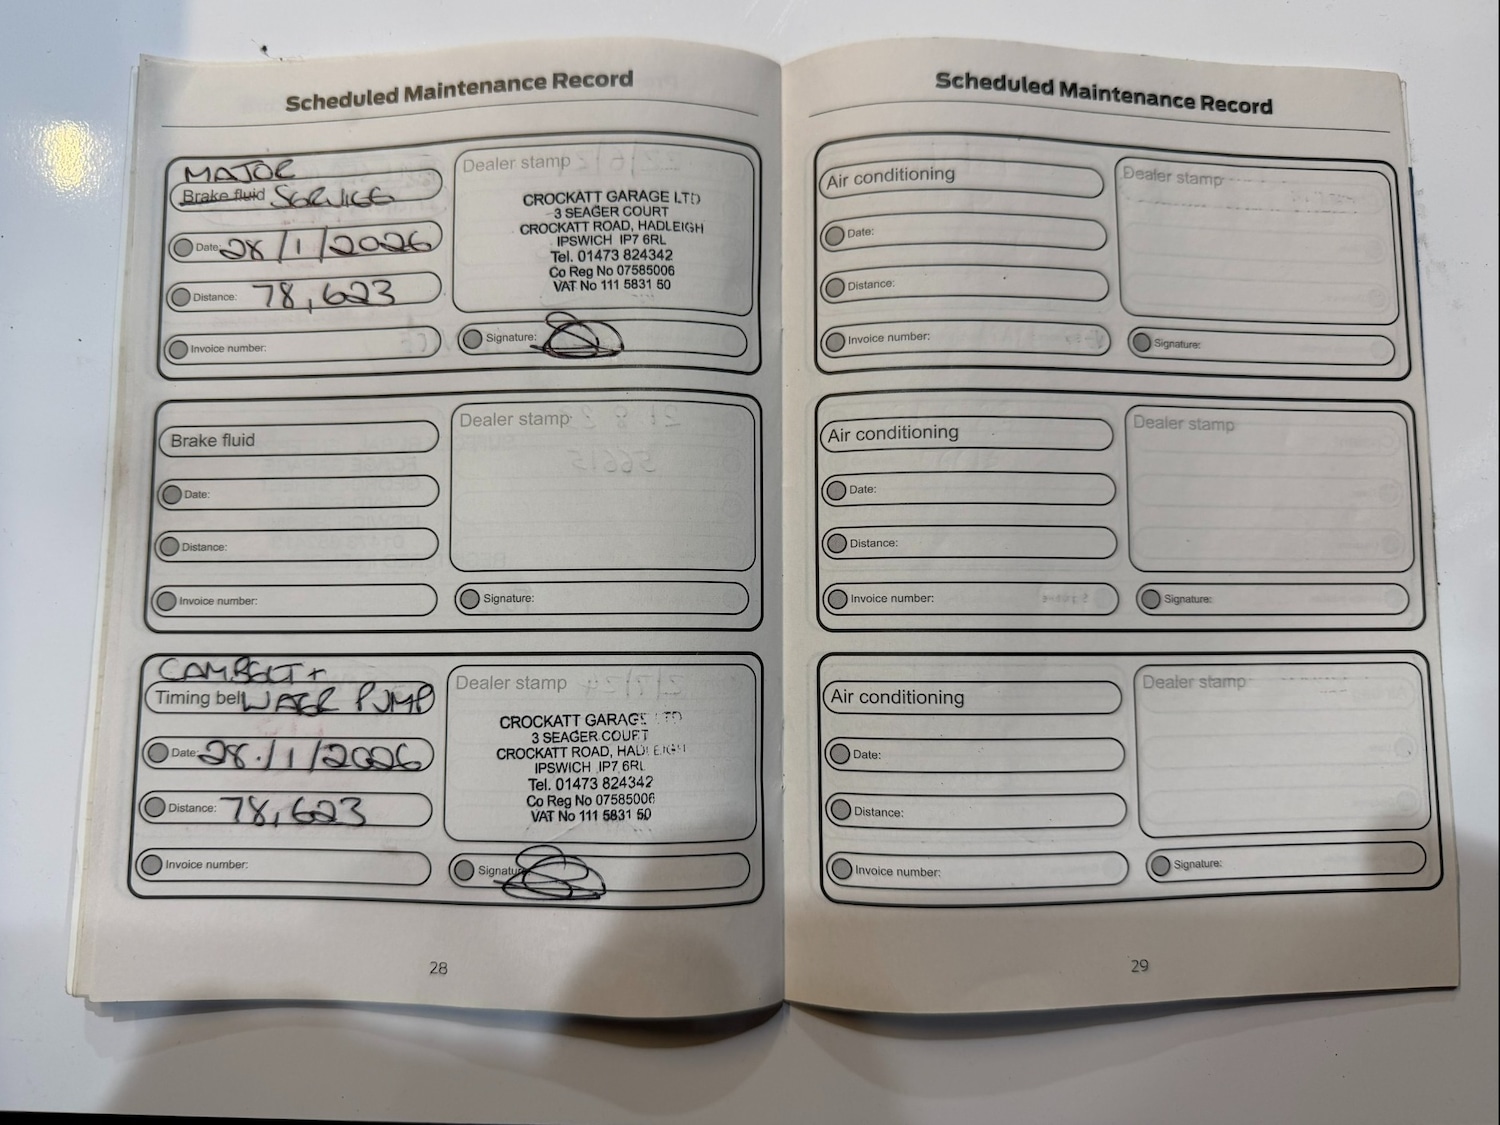 Scheduled Maintenance Record
MAJOR
Brake fluid SERVICE
Date: 28/1/2026
Distance: 78,623
Invoice number:
Dealer stamp
CROCKATT GARAGE LTD
3 SEAGER COURT
CROCKATT ROAD, HADLEIGH
IPSWICH IP7 6RL
Tel. 01473 824342
Co Reg No 07585006
VAT No 111 5831 50
Signature:
Brake fluid
Date:
Distance:
Invoice number:
Dealer stamp
Signature:
CAMBELT +
Timing belt WATER PUMP
Date: 28/1/2026
Distance: 78,623
Invoice number:
Dealer stamp
CROCKATT GARAGE LTD
3 SEAGER COURT
CROCKATT ROAD, HADLEIGH
IPSWICH IP7 6RL
Tel. 01473 824342
Co Reg No 07585006
VAT No 111 5831 50
Signature
28
Scheduled Maintenance Record
Air conditioning
Date:
Distance:
Invoice number:
Dealer stamp
Signature:
Air conditioning
Date:
Distance:
Invoice number:
Dealer stamp
Signature:
Air conditioning
Date:
Distance:
Invoice number:
Dealer stamp
Signature:
29